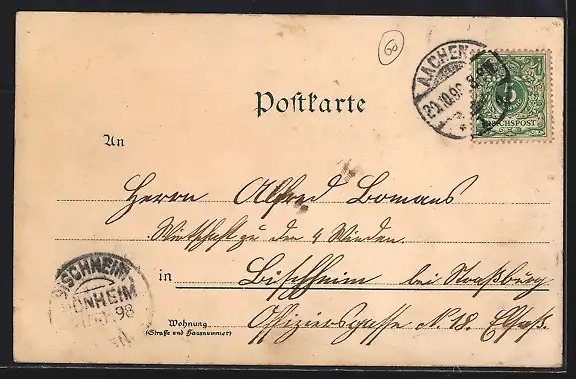 60
AACHEN
5
REICHSPOST
Postkarte
An
Herrn Alfred Bomans
Wirthschaft zu den 4 Winden.
in Bischheim bei Straßburg
Wohnung
(Straße und Hausnummer)
Offiziersgasse N. 18. Elsaß.
BISCHHEIM-
HÖNHEIM
98